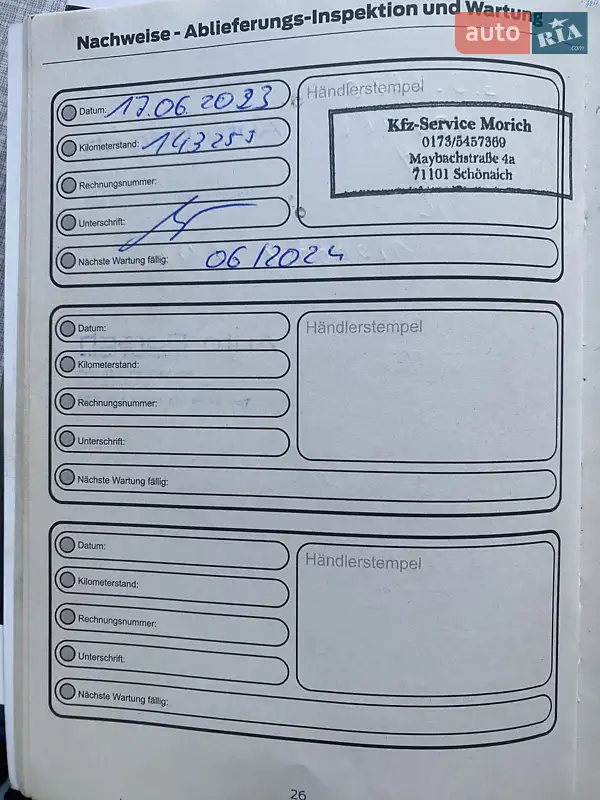 Nachweise - Ablieferungs-Inspektion und Wartung
auto RIA .com
Datum: 17.06.2023
Kilometerstand:
Rechnungsnummer:
Unterschrift:
Nächste Wartung fällig: 06/2024
Händlerstempel
Kfz-Service Morich
0173/5457369
Maybachstraße 4a
71101 Schönaich
Datum:
Kilometerstand:
Rechnungsnummer:
Unterschrift:
Nächste Wartung fällig:
Händlerstempel
Datum:
Kilometerstand:
Rechnungsnummer:
Unterschrift:
Nächste Wartung fällig:
Händlerstempel
26